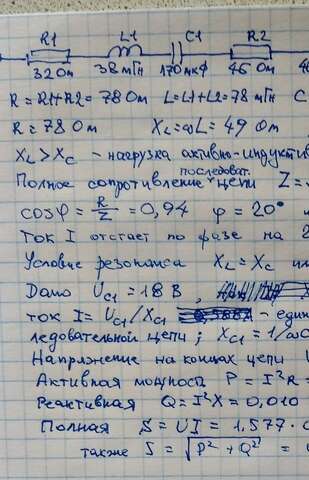 R1 L1 C1 R2
32 Ом 38 мГн 170 мкФ 46 Ом
R = R1+R2 = 78 Ом L = L1+L2 = 78 мГн C
R = 78 Ом XL = ωL = 49 Ом
XL > XC - нагрузка активно-индуктив
последоват.
Полное сопротивление цепи Z =
cosφ = R/Z = 0,94 φ = 20°
Ток I отстает по фазе на 2
Условие резонанса XL = XC
Дано UC1 = 18 В,
ток I = UC1/XC1 - един
ледовательной цепи; XC1 = 1/ωC
Напряжение на концах цепи U
Активная мощность P = I²R =
Реактивная Q = I²X = 0,010
Полная S = UI = 1,577
также S = √P² + Q² =